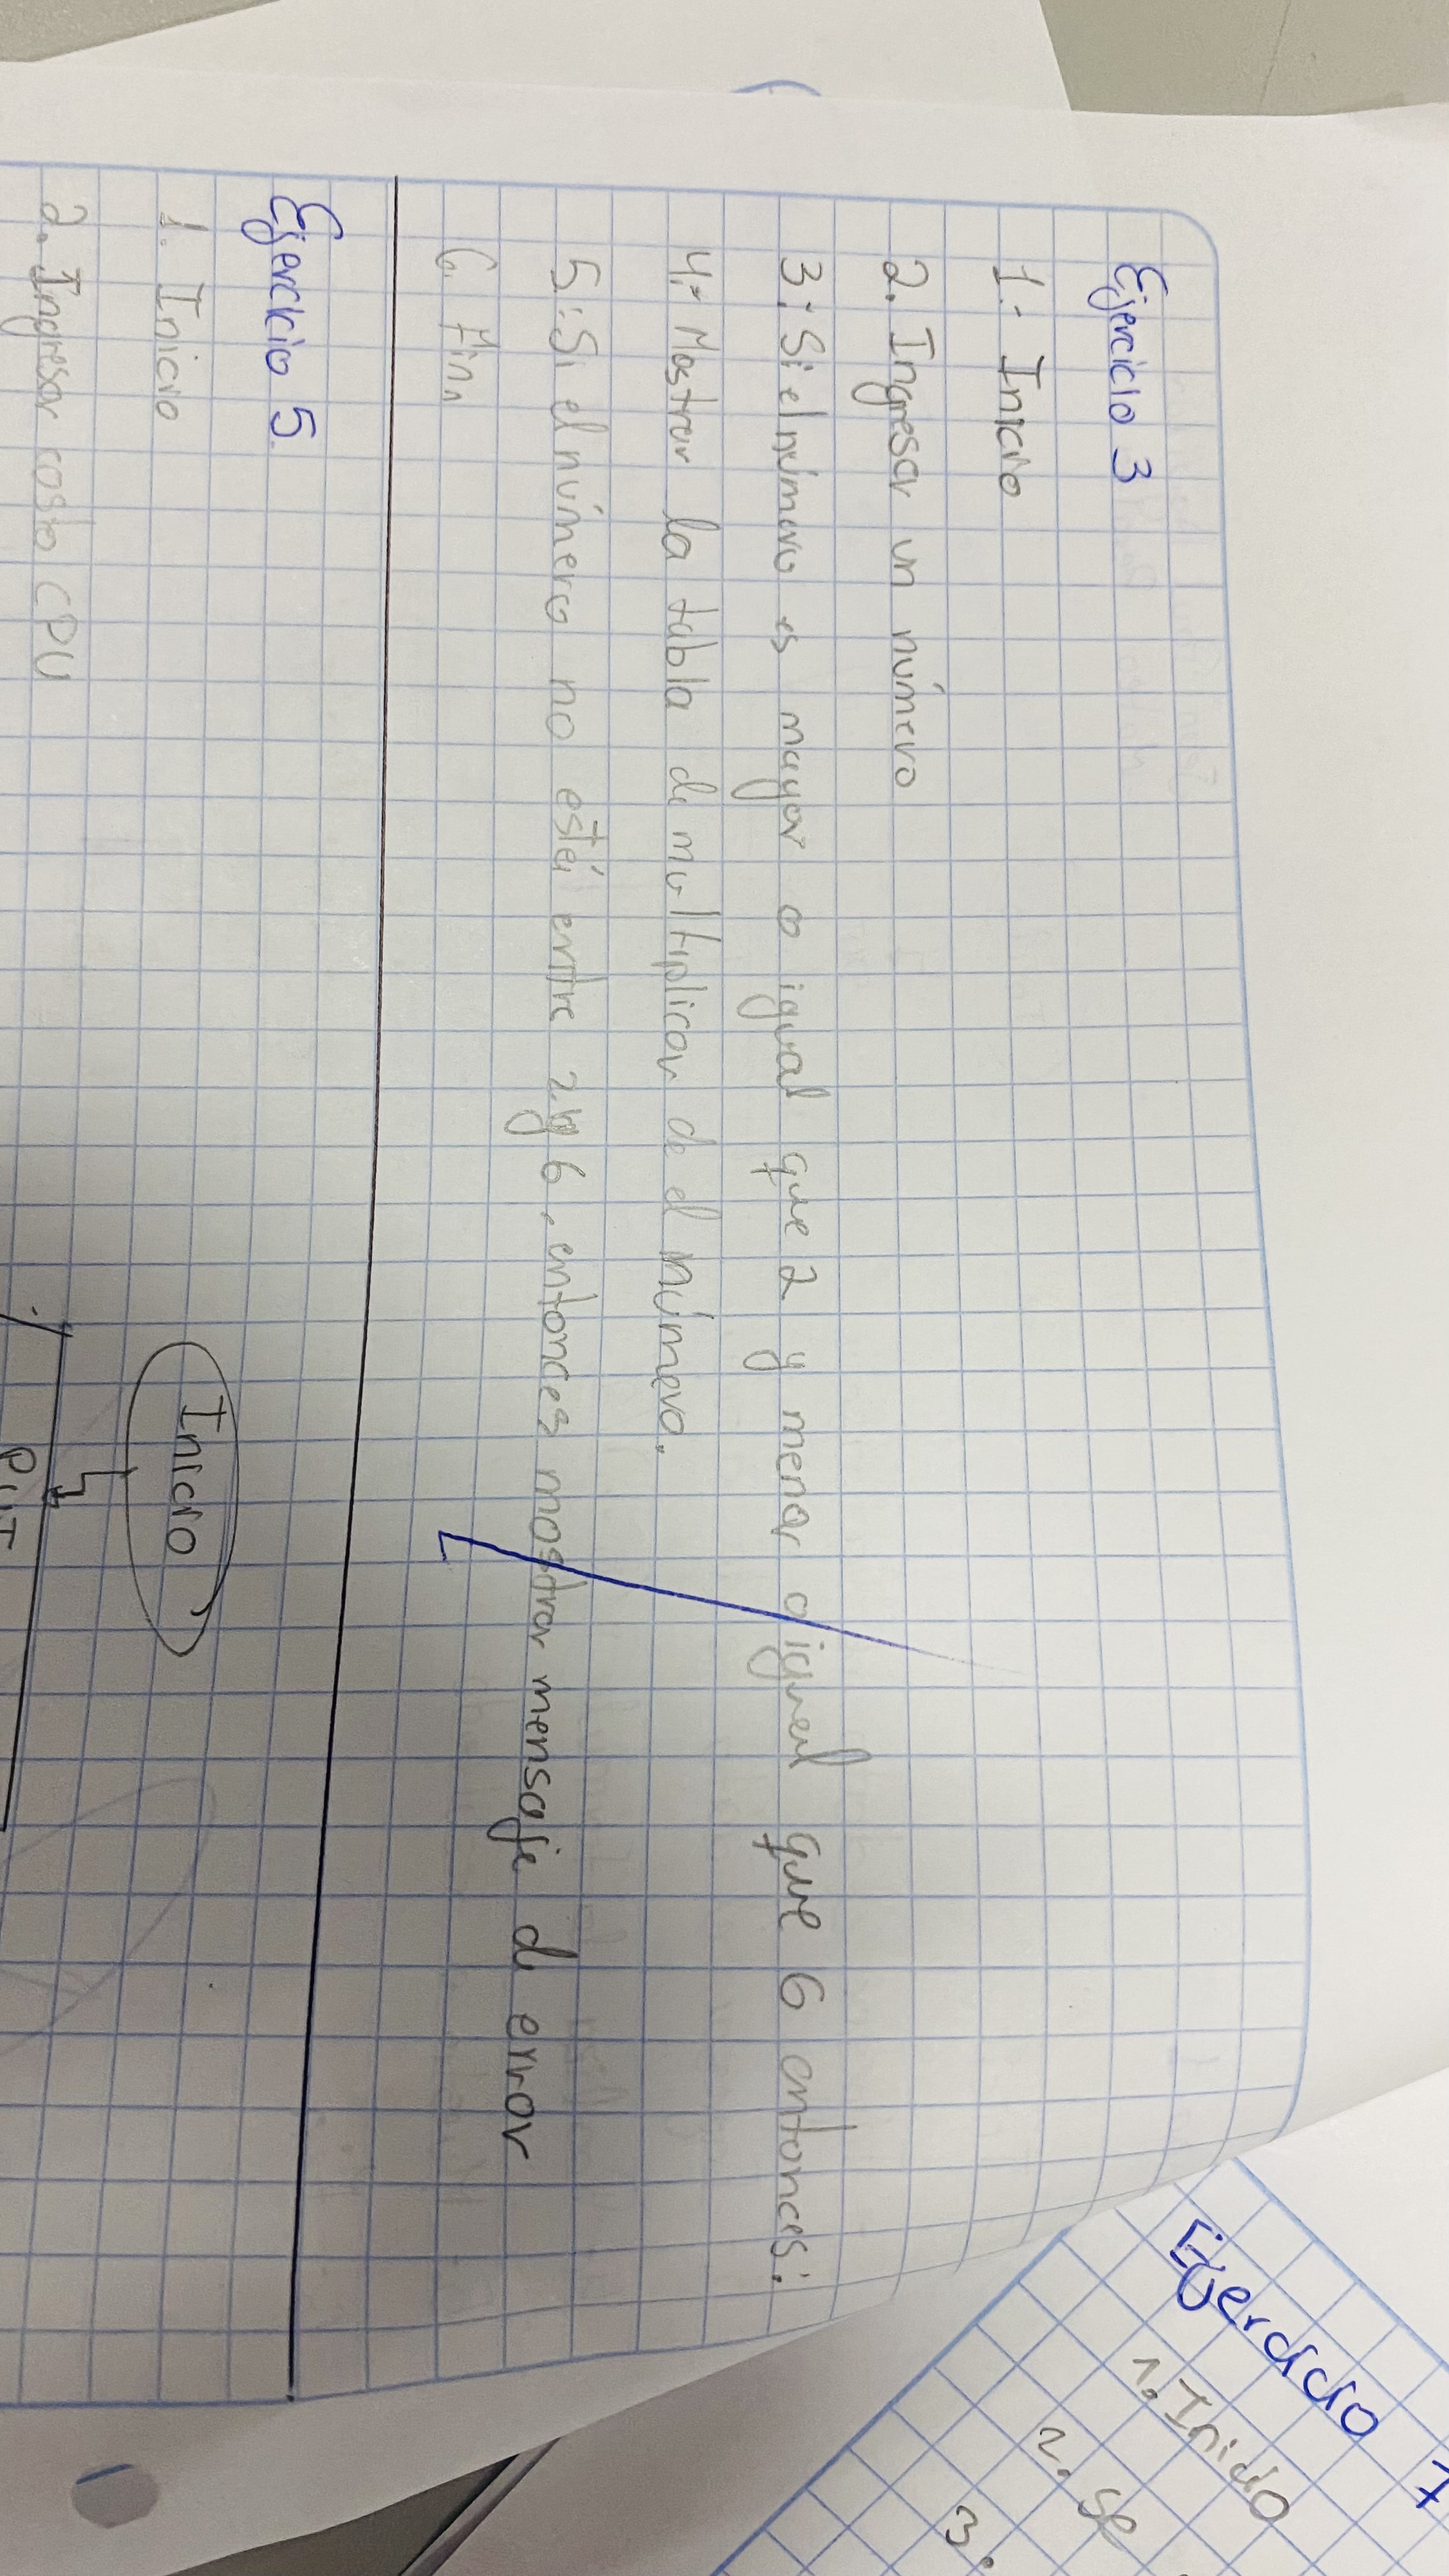 Ejercicio 3
1.- Inicio
2. Ingresar un número
3.- Si el número es mayor o igual que 2 y menor o igual que 6 entonces:
4.- Mostrar la tabla de multiplicar de el número.
5.- Si el número no está entre 2 y 6, entonces mostrar mensaje de error
6. Fin
Ejercicio 5
1. Inicio
2. Ingresar costo CPU
Inicio
Ejercicio 7
1. Inicio
2. Se
3.